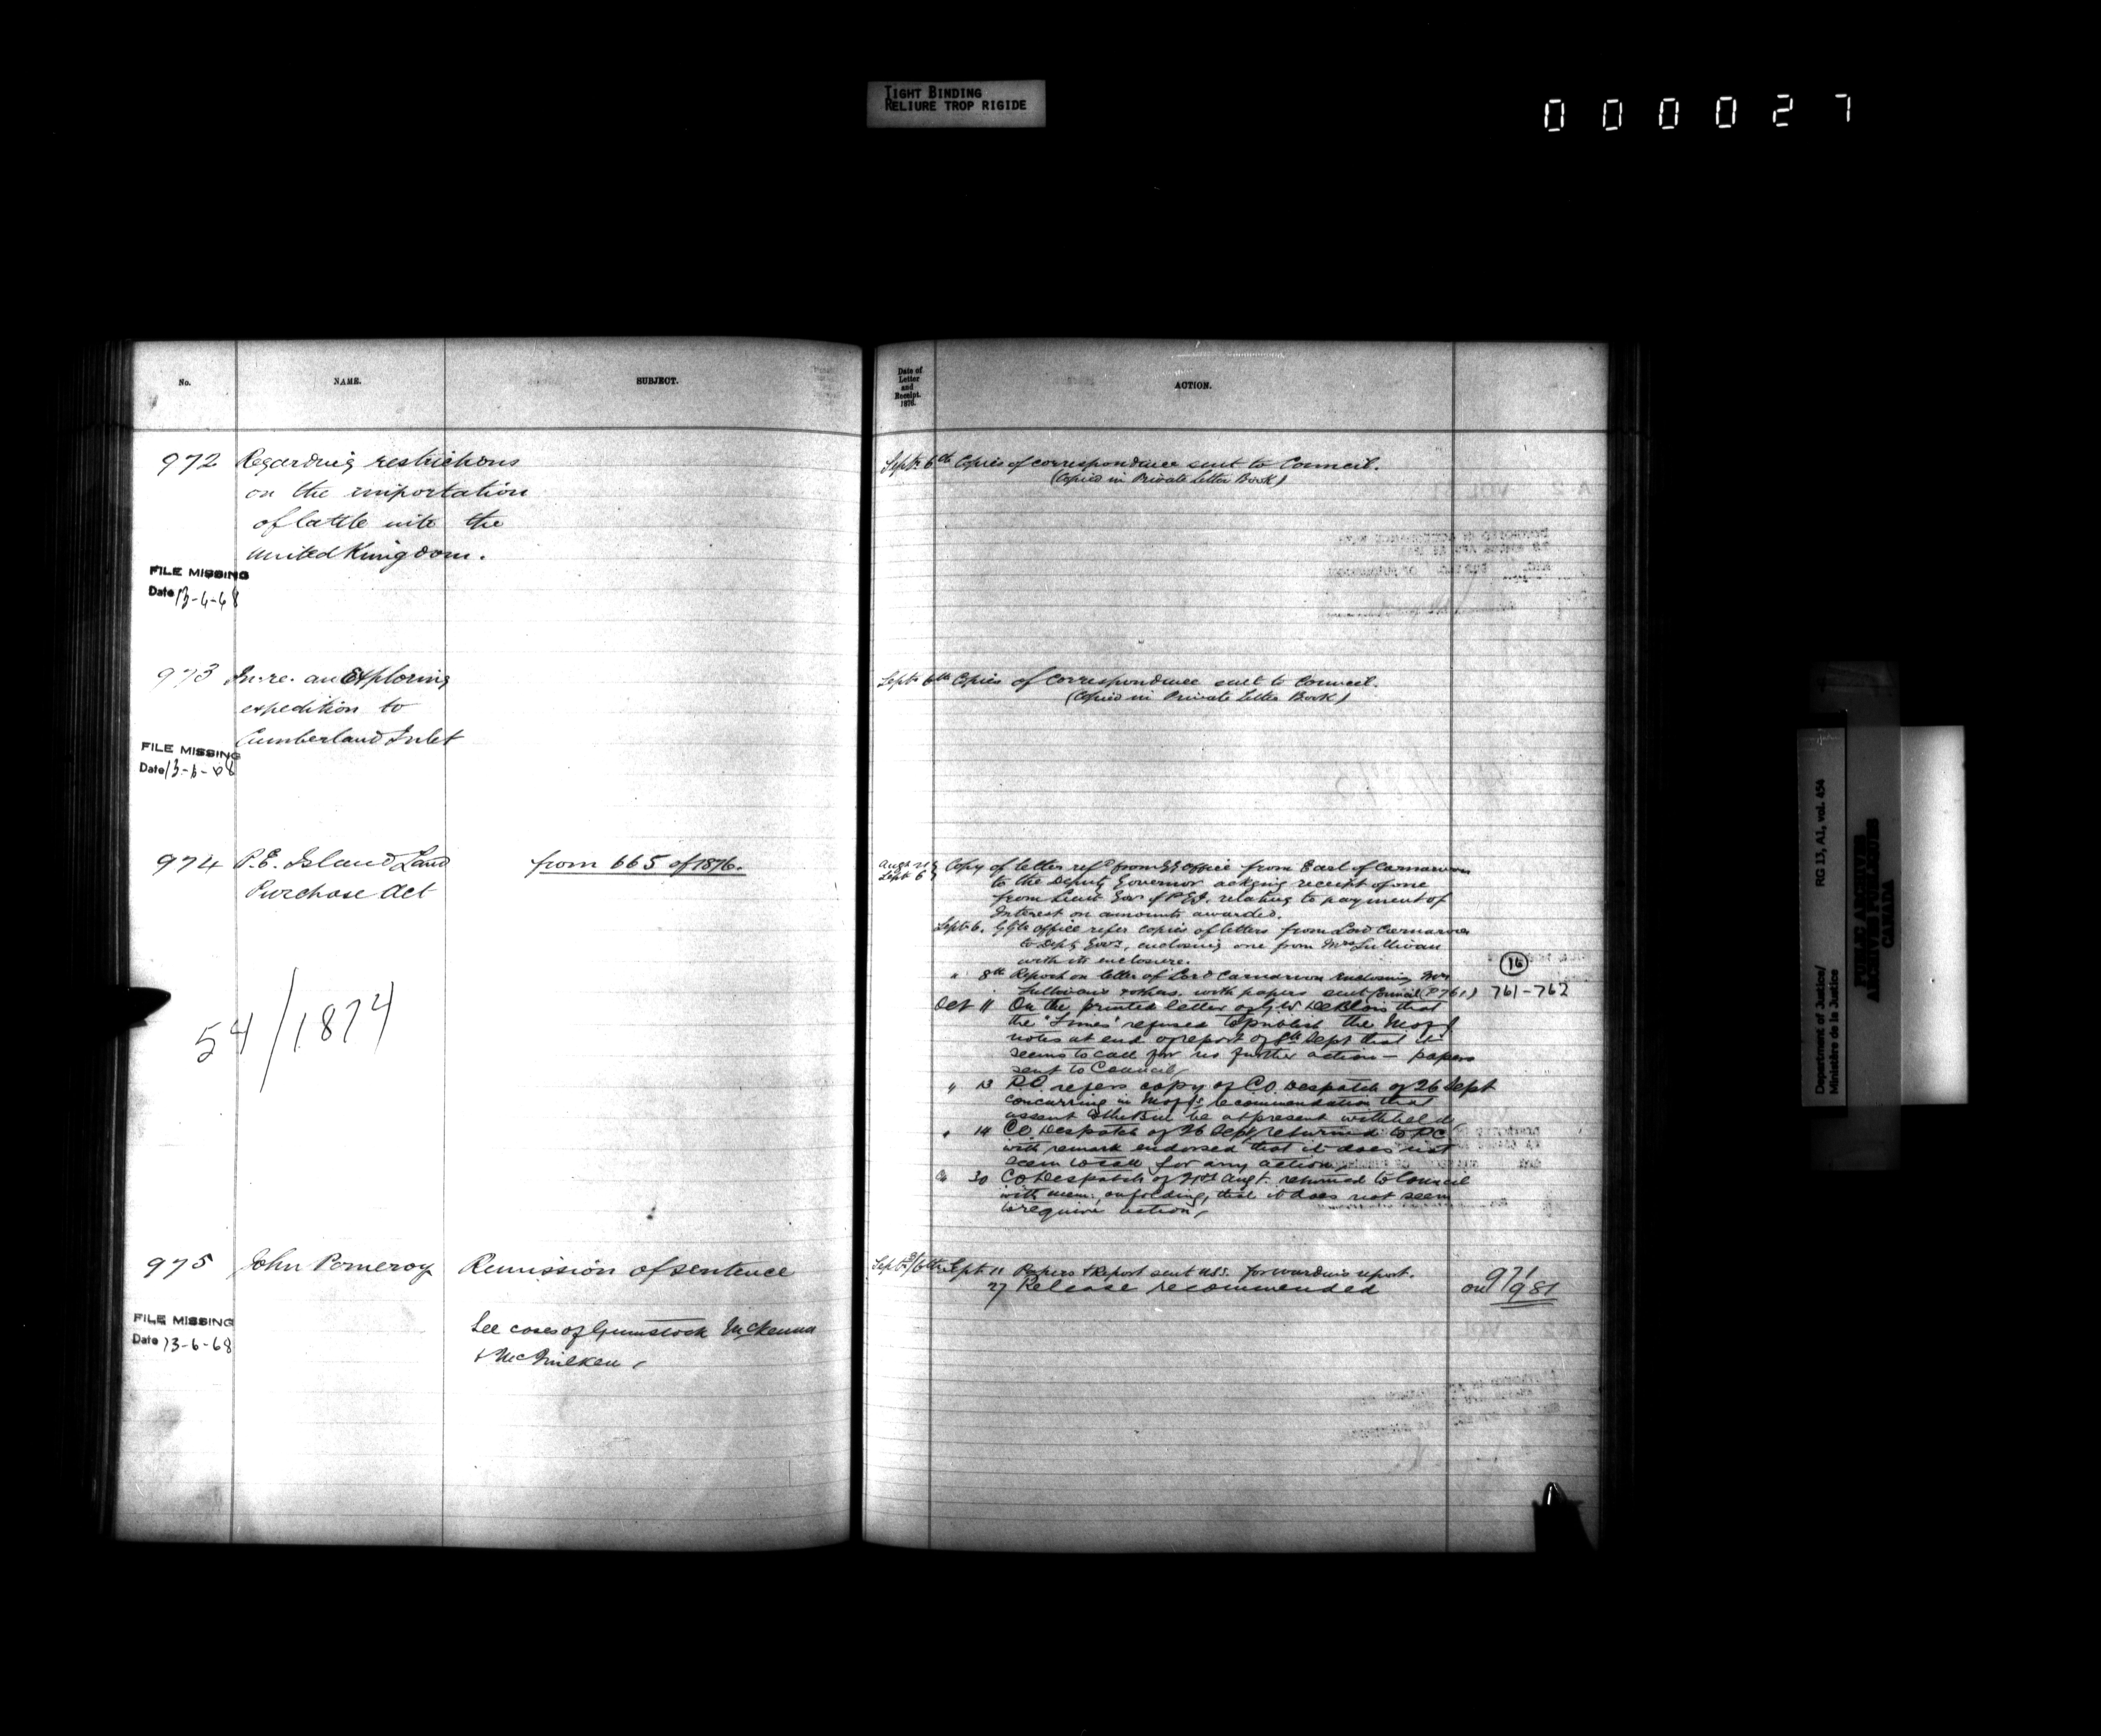 TIGHT BINDING
RELIURE TROP RIGIDE
0 0 0 0 2 7
No.
NAME.
SUBJECT.
Date of
Letter
and
Receipt.
1876.
ACTION.
972 Regarding restrictions
on the importation
of Cattle into the
United Kingdom.
FILE MISSING
Date 13-6-68
Septr 6th Copies of correspondence sent to Council.
(Copied in Private Letter Book)
973 In re. an Exploring
expedition to
Cumberland Inlet
FILE MISSING
Date 13-6-68
Septr 6th Copies of Correspondence sent to Council.
(Copied in Private Letter Book)
974 P.E. Island Land
Purchase Act
from 665 of 1876.
54/1874
Augt 21
Septr 6
Copy of letter refd from GG office from Earl of Carnarvon
to the Deputy Governor ackging receipt of one
from Lieut Govr of PEI. relating to payment of
Interest on amounts awarded.
Septr 6. GG's office refer copies of letters from Lord Carnarvon
to Depty Govr., enclosing one from Mrs Sullivan
with its enclosure.
" 8th Report on letter of Lord Carnarvon enclosing Mrs
Sullivan's & others. with papers sent Council (P761)
16
761-762
Oct 11 On the printed letter of G W DeBlois that
the "Times" refused to publish the M of J
notes at end of report of 8th Sept that it
seems to call for no further action - papers
sent to Council
" 13 P.C. refers copy of C.O. Despatch of 26 Sept
concurring in M of J's recommendation that
assent to the Bill be at present withheld,
" 14 CO Despatch of 26 Sept returned to P.C.
with remark endorsed that it does not
seem to call for any action,
30 CO Despatch of 21st Augt. returned to Council
with mem: on folding, that it does not seem
to require action,
975 John Pomeroy
Remission of sentence
See cases of McKenna
&
FILE MISSING
Date 13-6-68
Sept 11 Papers & Report sent U.S.S. forwarding report.
27 Release recommended
971
on 981
Department of Justice/
Ministère de la Justice
RG 13, A1, vol. 454
PUBLIC ARCHIVES
ARCHIVES PUBLIQUES
CANADA